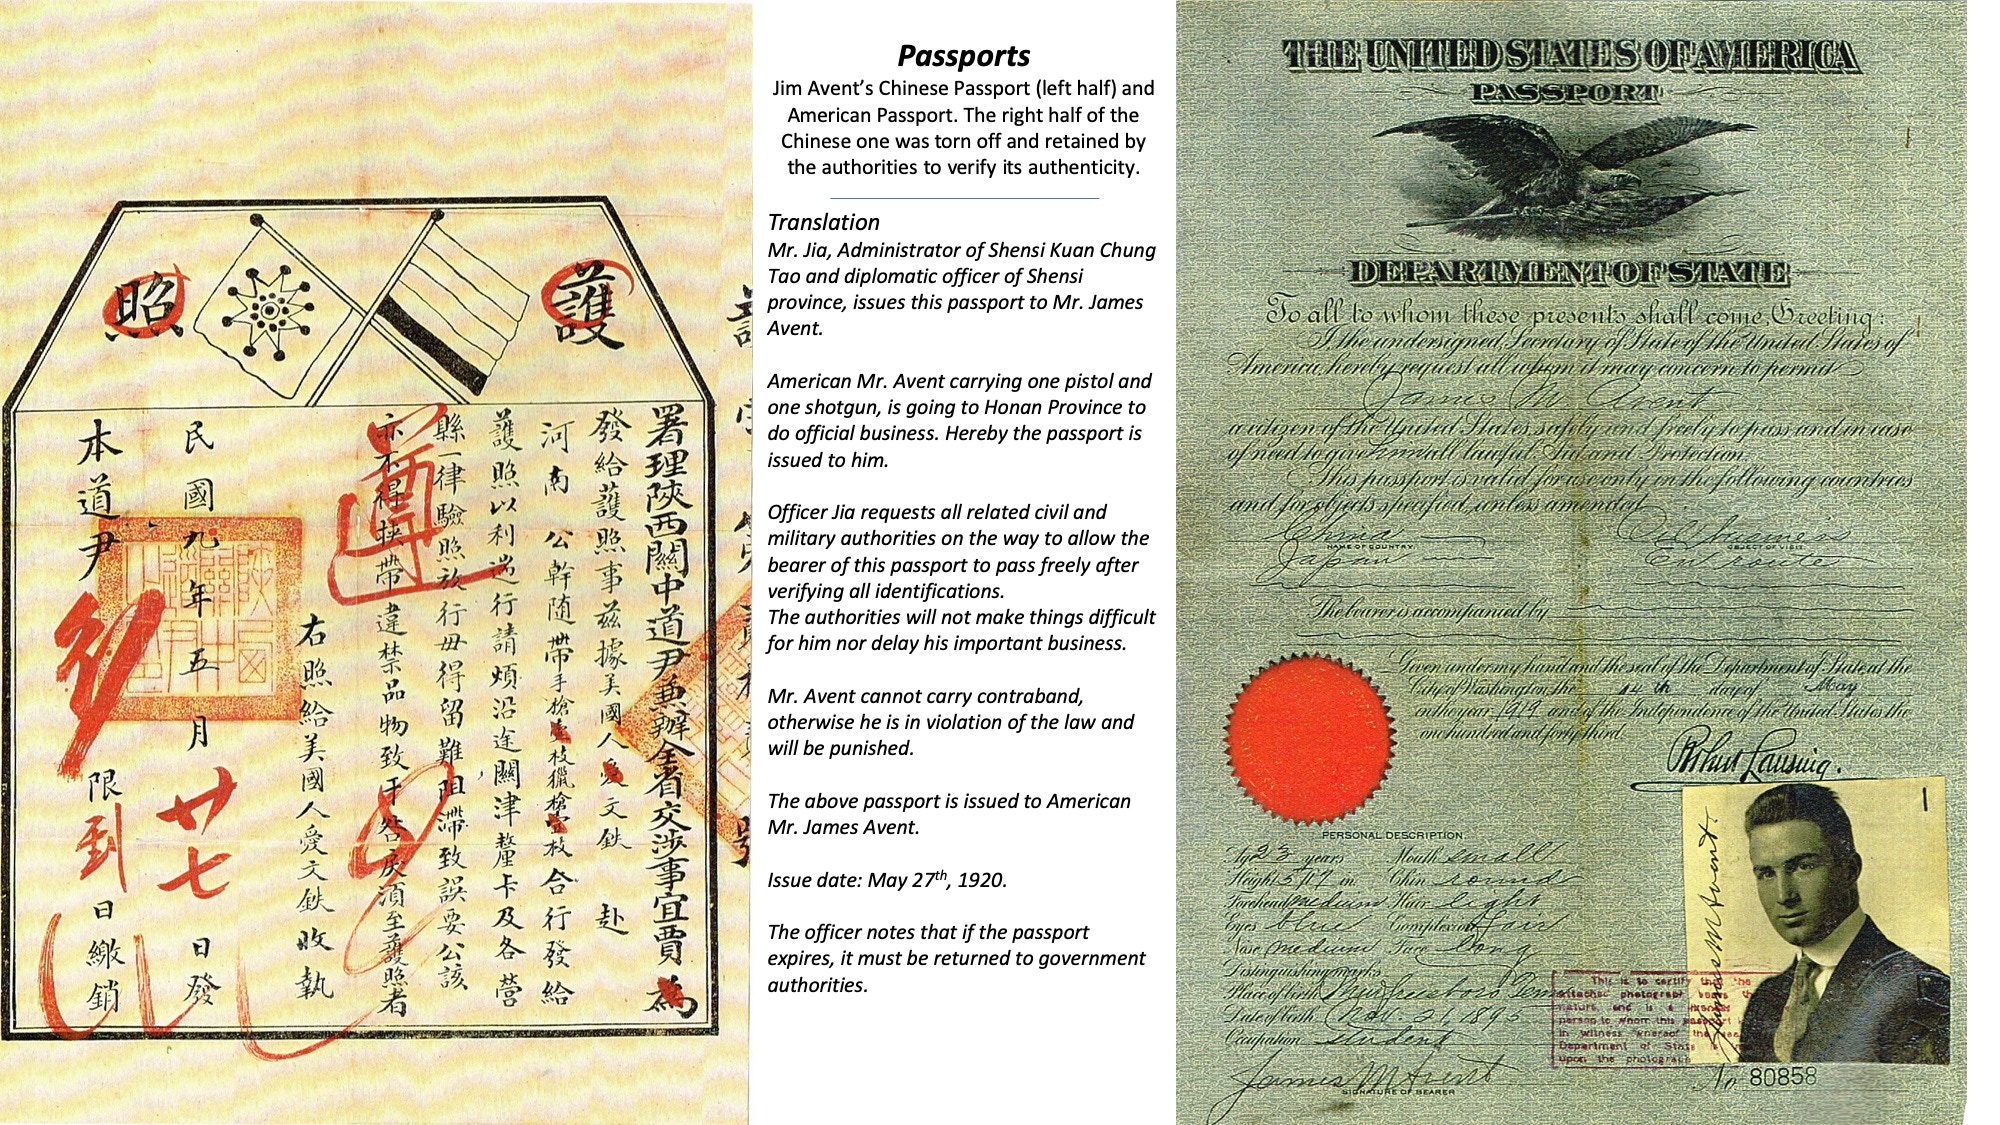 護照
署理陝西關中道尹兼辦全省交涉事宜賈 為
發給護照事茲據美國人愛文鉄 赴
河南 公幹隨帶手槍壹枝獵槍壹枝合行發給
護照以利遄行請煩沿途關津釐卡及各營
縣一律驗照放行毋得留難阻滯致誤要公該
亦不得挾帶違禁品物致干咎戾須至護照者
右照給美國人愛文鉄收執
民國九年五月廿七日發
本道尹 限到日繳銷
Passports
Jim Avent’s Chinese Passport (left half) and
American Passport. The right half of the
Chinese one was torn off and retained by
the authorities to verify its authenticity.
Translation
Mr. Jia, Administrator of Shensi Kuan Chung
Tao and diplomatic officer of Shensi
province, issues this passport to Mr. James
Avent.
American Mr. Avent carrying one pistol and
one shotgun, is going to Honan Province to
do official business. Hereby the passport is
issued to him.
Officer Jia requests all related civil and
military authorities on the way to allow the
bearer of this passport to pass freely after
verifying all identifications.
The authorities will not make things difficult
for him nor delay his important business.
Mr. Avent cannot carry contraband,
otherwise he is in violation of the law and
will be punished.
The above passport is issued to American
Mr. James Avent.
Issue date: May 27th, 1920.
The officer notes that if the passport
expires, it must be returned to government
authorities.
THE UNITED STATES OF AMERICA
PASSPORT
DEPARTMENT OF STATE
To all to whom these presents shall come, Greeting:
I the undersigned, Secretary of State of the United States of
America, hereby request all whom it may concern to permit
James M Avent
a citizen of the United States, safely and freely to pass and in case
of need to give him all lawful Aid and Protection.
This passport is valid for use only in the following countries
and for objects specified, unless amended.
China On business
NAME OF COUNTRY OBJECT OF VISIT
Japan En route
The bearer is accompanied by
Given under my hand and the seal of the Department of State at the
City of Washington, the 14th day of May
in the year 1919 and of the Independence of the United States the
one hundred and forty third.
Robert Lansing.
PERSONAL DESCRIPTION.
Age 23 years Mouth small
Height Chin round
Forehead medium Hair light
Eyes blue Complexion fair
Nose medium Face Long
Distinguishing marks
Place of birth Murfreesboro Tenn
Date of birth Nov. 21, 1895
Occupation student
James M Avent
SIGNATURE OF BEARER
James M Avent.
This is to certify that the
attached photograph bears
person to whom this passport
in witness whereof the
Department of State is
upon the photograph
No 80858